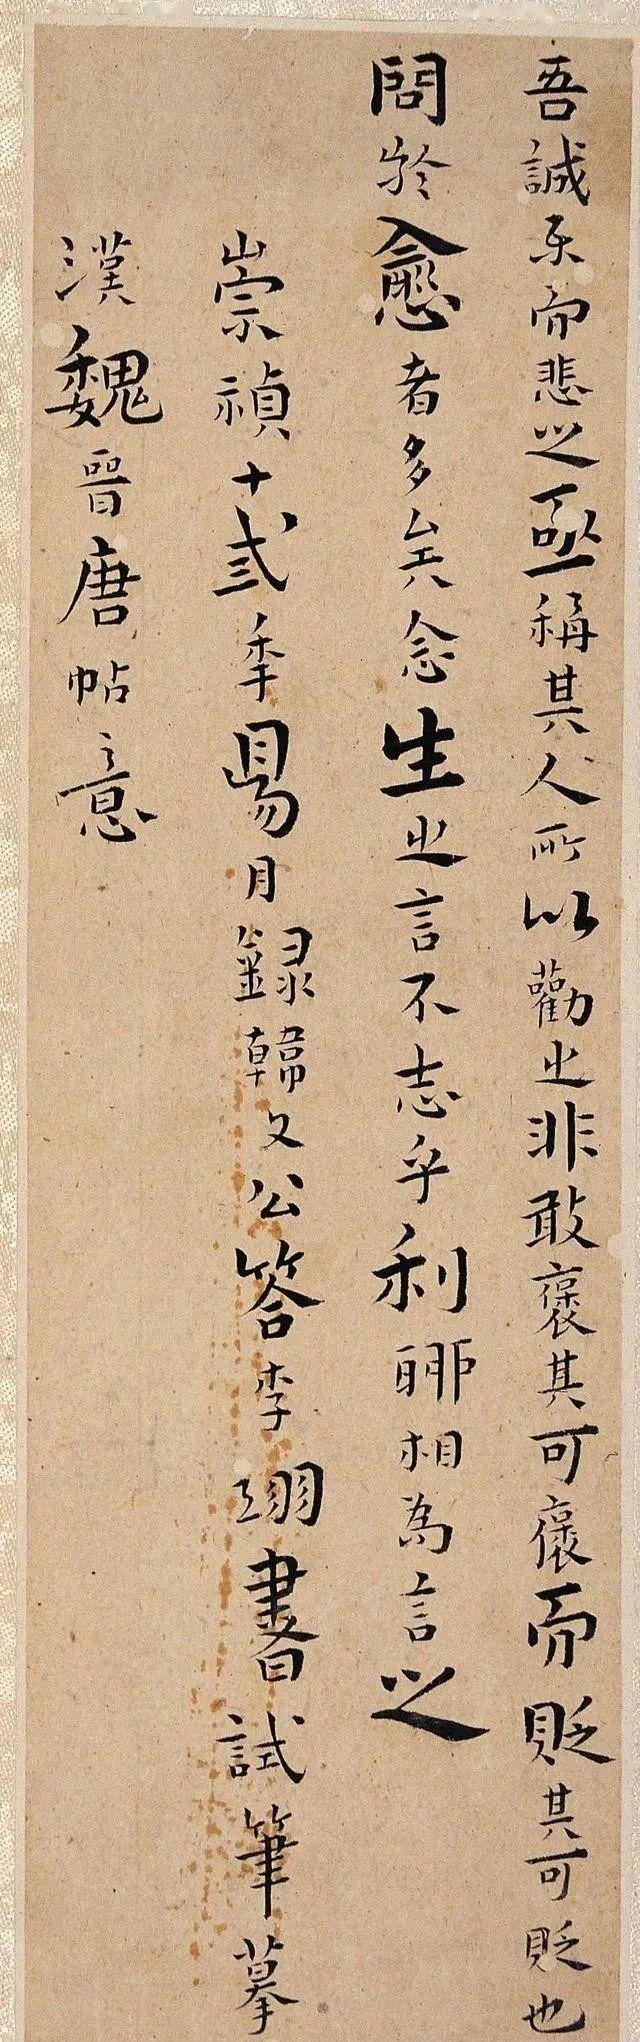 吾誠乐而悲之亟稱其人所以勸之非敢褒其可褒而貶其可貶也
問於愈者多矣念生之言不志乎利聊相為言之
崇禎十弍季昜月録韓文公答李翊書試筆摹
漢魏晉唐帖意